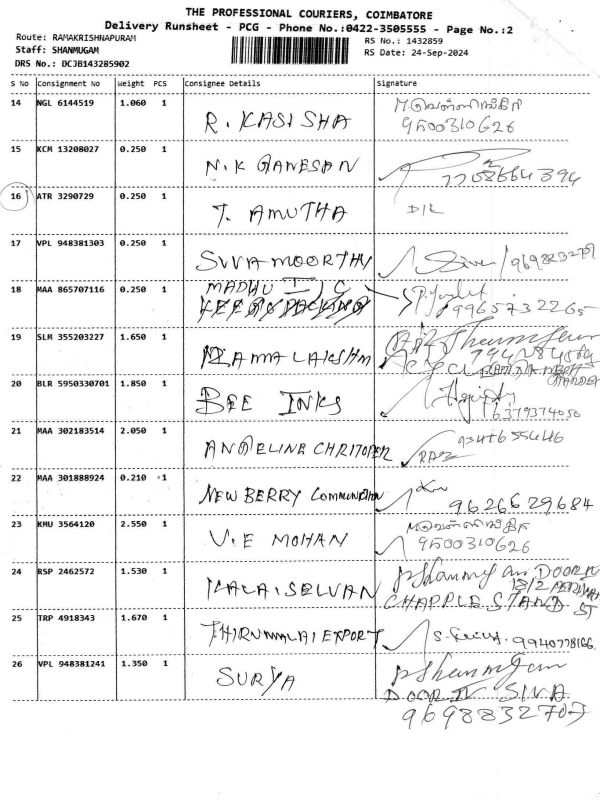 THE PROFESSIONAL COURIERS, COIMBATORE
Delivery Runsheet - PCG - Phone No.:0422-3505555 - Page No.:2
Route: RAMAKRISHNAPURAM
RS No.: 1432859
Staff: SHANMUGAM
RS Date: 24-Sep-2024
DRS No.: DCJB143285902
S No Consignment No Weight PCS Consignee Details Signature
14 NGL 6144519 1.060 1 R. KASISHA
9500310626
15 KCM 13208027 0.250 1 N.K GANESAN
16 ATR 3290729 0.250 1 T. AMUTHA D/L
17 VPL 948381303 0.250 1 SIVAMOORTHY
18 MAA 865707116 0.250 1 MADHU
9965732265
19 SLM 355203227 1.650 1 RAMALAKSHM
20 BLR 5950330701 1.850 1 BEE INKS
6379374050
21 MAA 302183514 2.050 1 ANGELINE CHRITOPER
22 MAA 301888924 0.210 1 NEW BERRY
9626629684
23 KMU 3564120 2.550 1 V.E MOHAN
9500310626
24 RSP 2462572 1.530 1 KALAISELVAN DOOR IN
CHAPPLE STAND ST
25 TRP 4918343 1.670 1 THIRUMALAI EXPORT
26 VPL 948381241 1.350 1 SURYA
DOOR IN SIVA
9698832707